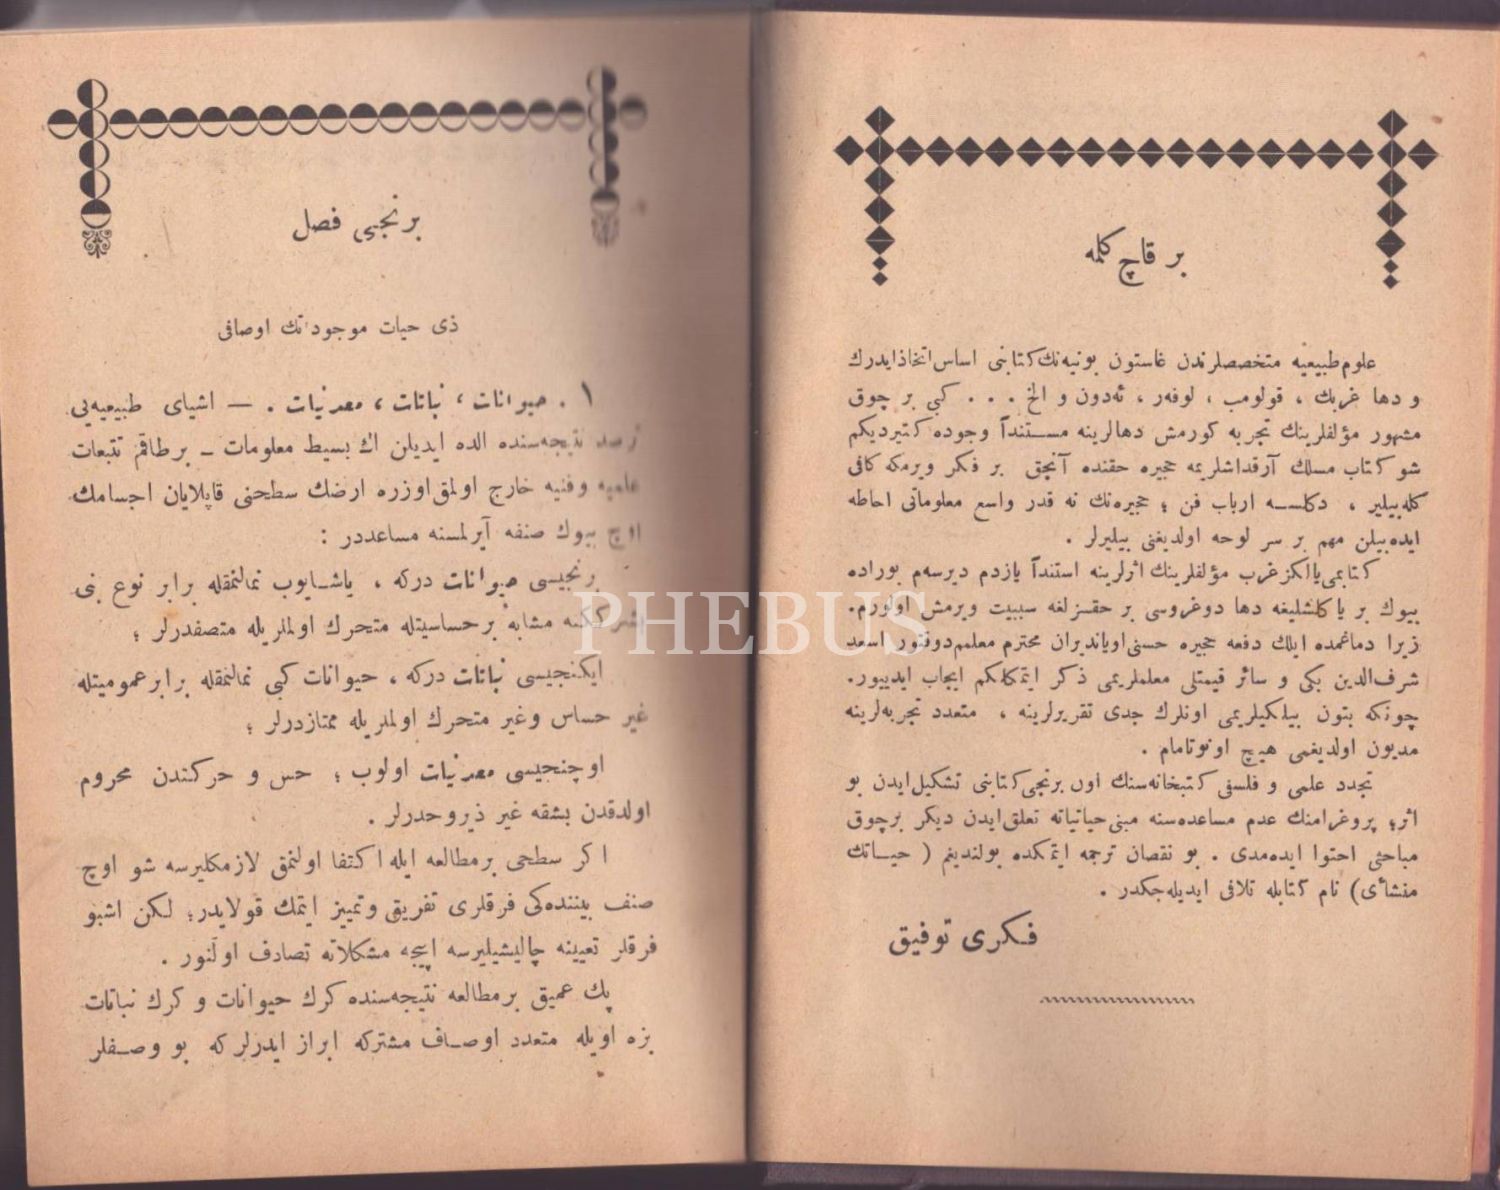 بر قاچ كلمه
علوم طبيعيه متخصصلرندن غاستون بونيه‌نك كتابنى اساس اتخاذ ايدرك
و دها غربك ، قولومب ، لوفه‌ر ، ئه‌دون و الخ . . . كبى بر چوق
مشهور مؤلفلرينك تجربه كورمش دهالرينه مستنداً وجوده كتيرديكم
شو كتاب مسلك آرقداشلريمه حجيره حقنده آنجق بر فكر ويرمكه كافى
كله‌بيلير ، دكلسه ارباب فن ؛ حجيره‌نك نه قدر واسع معلوماتى احاطه
ايده‌بيلن مهم بر سر لوحه اولديغنى بيليرلر .
كتابمى يالكز غرب مؤلفلرينك اثرلرينه استنداً يازدم ديرسه‌م بوراده
بيوك بر ياكلشليغه دها دوغروسى بر حقسزلغه سببيت ويرمش اولورم.
زيرا دماغمده ايلك دفعه حجيره حسنى اويانديران محترم معلمم دوقتور اسعد
شرف‌الدين بكى و سائر قيمتلى معلملريمى ذكر ايتمكلكم ايجاب ايدييور.
چونكه بتون بيلكيلريمى اونلرك جدى تقريرلرينه ، متعدد تجربه‌لرينه
مديون اولديغمى هيچ اونوتامام .
تجدد علمى و فلسفى كتبخانه‌سنك اون برنجى كتابنى تشكيل ايدن بو
اثر؛ پروغرامنك عدم مساعده‌سنه مبنى حياتياته تعلق ايدن ديكر برچوق
مباحثى احتوا ايده‌مدى . بو نقصان ترجمه ايتمكده بولنديغم ( حياتك
منشأى) نام كتابله تلافى ايديله‌جكدر .
فكرى توفيق
برنجى فصل
ذى حيات موجوداتك اوصافى
١ . حيوانات ، نباتات ، معدنيات . — اشياى طبيعيه‌يى
ترصد نتيجه‌سنده الده ايديلن اك بسيط معلومات ـ برطاقم تتبعات
علميه وفنيه خارج اولمق اوزره ارضك سطحنى قاپلايان اجسامك
اوچ بيوك صنفه آيرلمسنه مساعددر :
برنجيسى حيوانات دركه ، ياشايوب نمالنمقله برابر نوع بنى
بشرككنه مشابه برحساسيتله متحرك اولملريله متصفدرلر ؛
ايكنجيسى نباتات دركه ، حيوانات كبى نمالنمقله برابر عموميتله
غير حساس وغير متحرك اولملريله ممتازدرلر ؛
اوچنجيسى معدنيات اولوب ؛ حس و حركتدن محروم
اولدقدن بشقه غير ذيروحدرلر .
اكر سطحى برمطالعه ايله اكتفا اولنمق لازمكليرسه شو اوچ
صنف بيننده‌كى فرقلرى تفريق وتمييز ايتمك قولايدر؛ لكن اشبو
فرقلر تعيينه چاليشيليرسه اييجه مشكلاته تصادف اولنور .
پك عميق برمطالعه نتيجه‌سنده كرك حيوانات و كرك نباتات
بزه اويله متعدد اوصاف مشتركه ابراز ايدرلركه بو وصفلر
PHEBUS